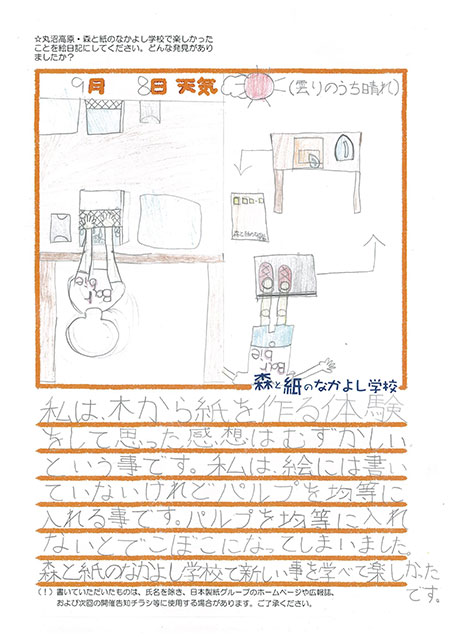 ☆丸沼高原・森と紙のなかよし学校で楽しかった
ことを絵日記にしてください。どんな発見があり
ましたか？
9月 8日 天気 (雲りのうち晴れ)
森と紙のなかよし
Bar
bie
Bar
bie
森と紙のなかよし学校
私は、木から紙を作る体験
をして思った感想はむずかしい
という事です。私は、絵には書い
ていないけれどパルプを均等に
入れる事です。パルプを均等に入れ
ないとでこぼこになってしまいました。
森と紙のなかよし学校で新しい事を学べて楽しかった
です。
(！) 書いていただいたものは、氏名を除き、日本製紙グループのホームページや広報誌、
および次回の開催告知チラシ等に使用する場合があります。ご了承ください。